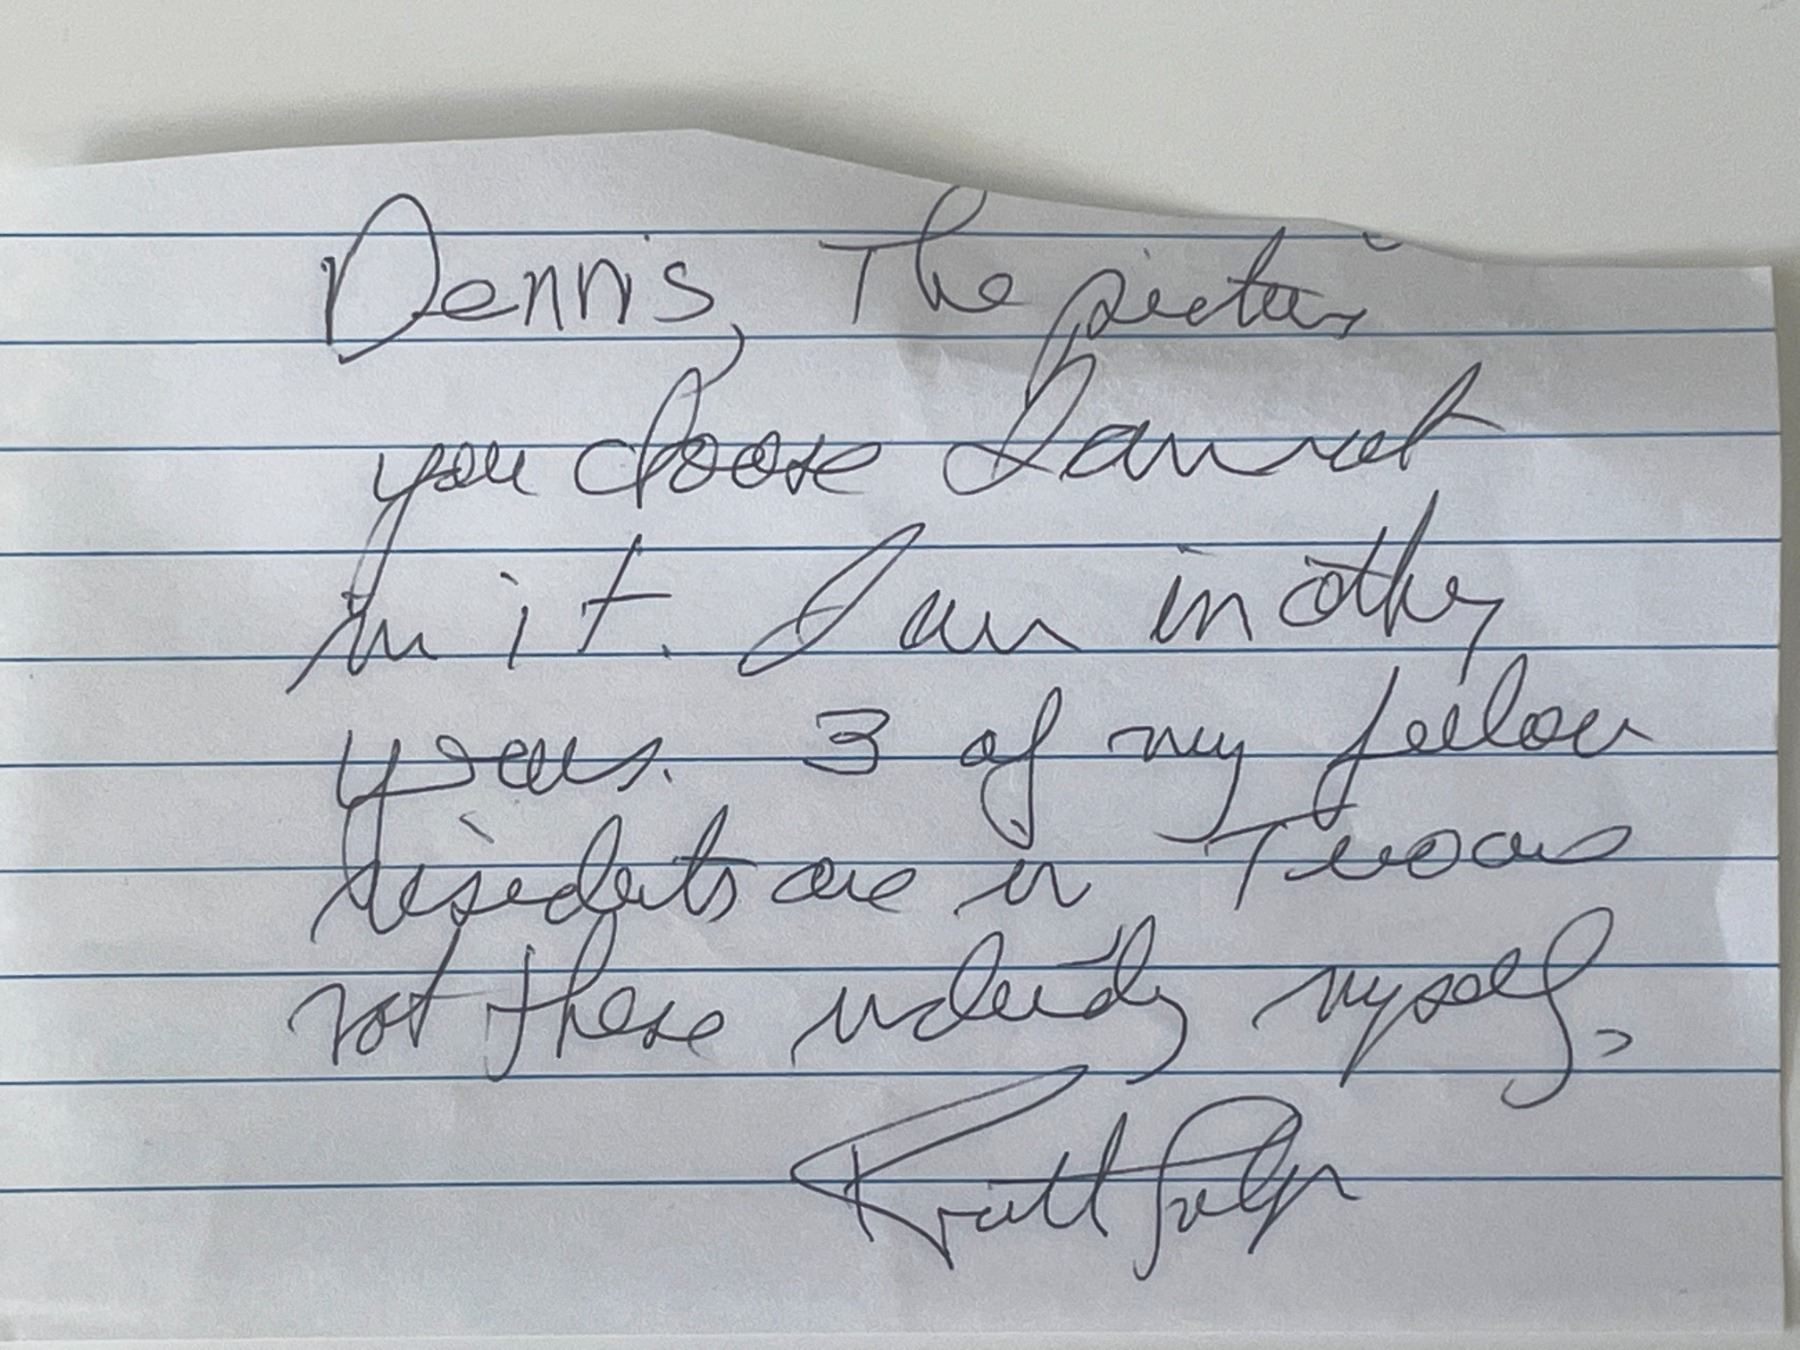 Dennis, The picture
you choose I am not
in it. I am in other
years. 3 of my fellow
residents are in Two are
not there including myself.